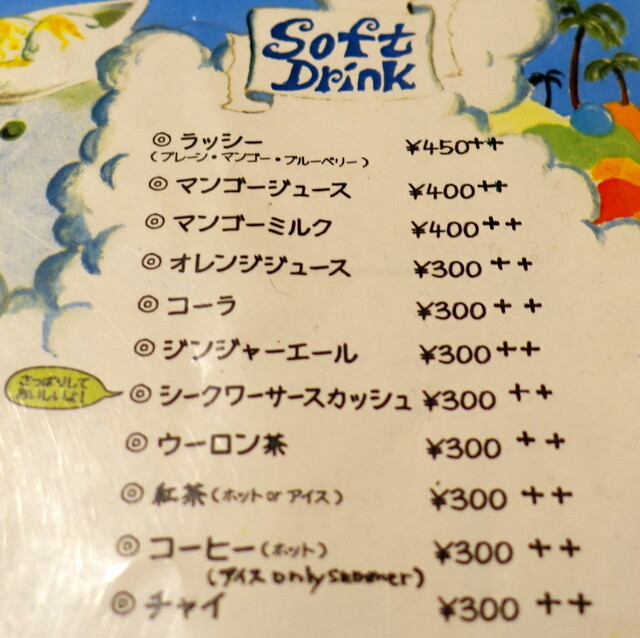 Soft
Drink
◎ ラッシー ¥450++
(プレーン・マンゴー・ブルーベリー)
◎ マンゴージュース ¥400++
◎ マンゴーミルク ¥400++
◎ オレンジジュース ¥300++
◎ コーラ ¥300++
◎ ジンジャーエール ¥300++
さっぱりして
おいしいよ!
◎ シークワーサースカッシュ ¥300++
◎ ウーロン茶 ¥300++
◎ 紅茶(ホット or アイス) ¥300++
◎ コーヒー(ホット) ¥300++
(アイス only summer)
◎ チャイ ¥300++